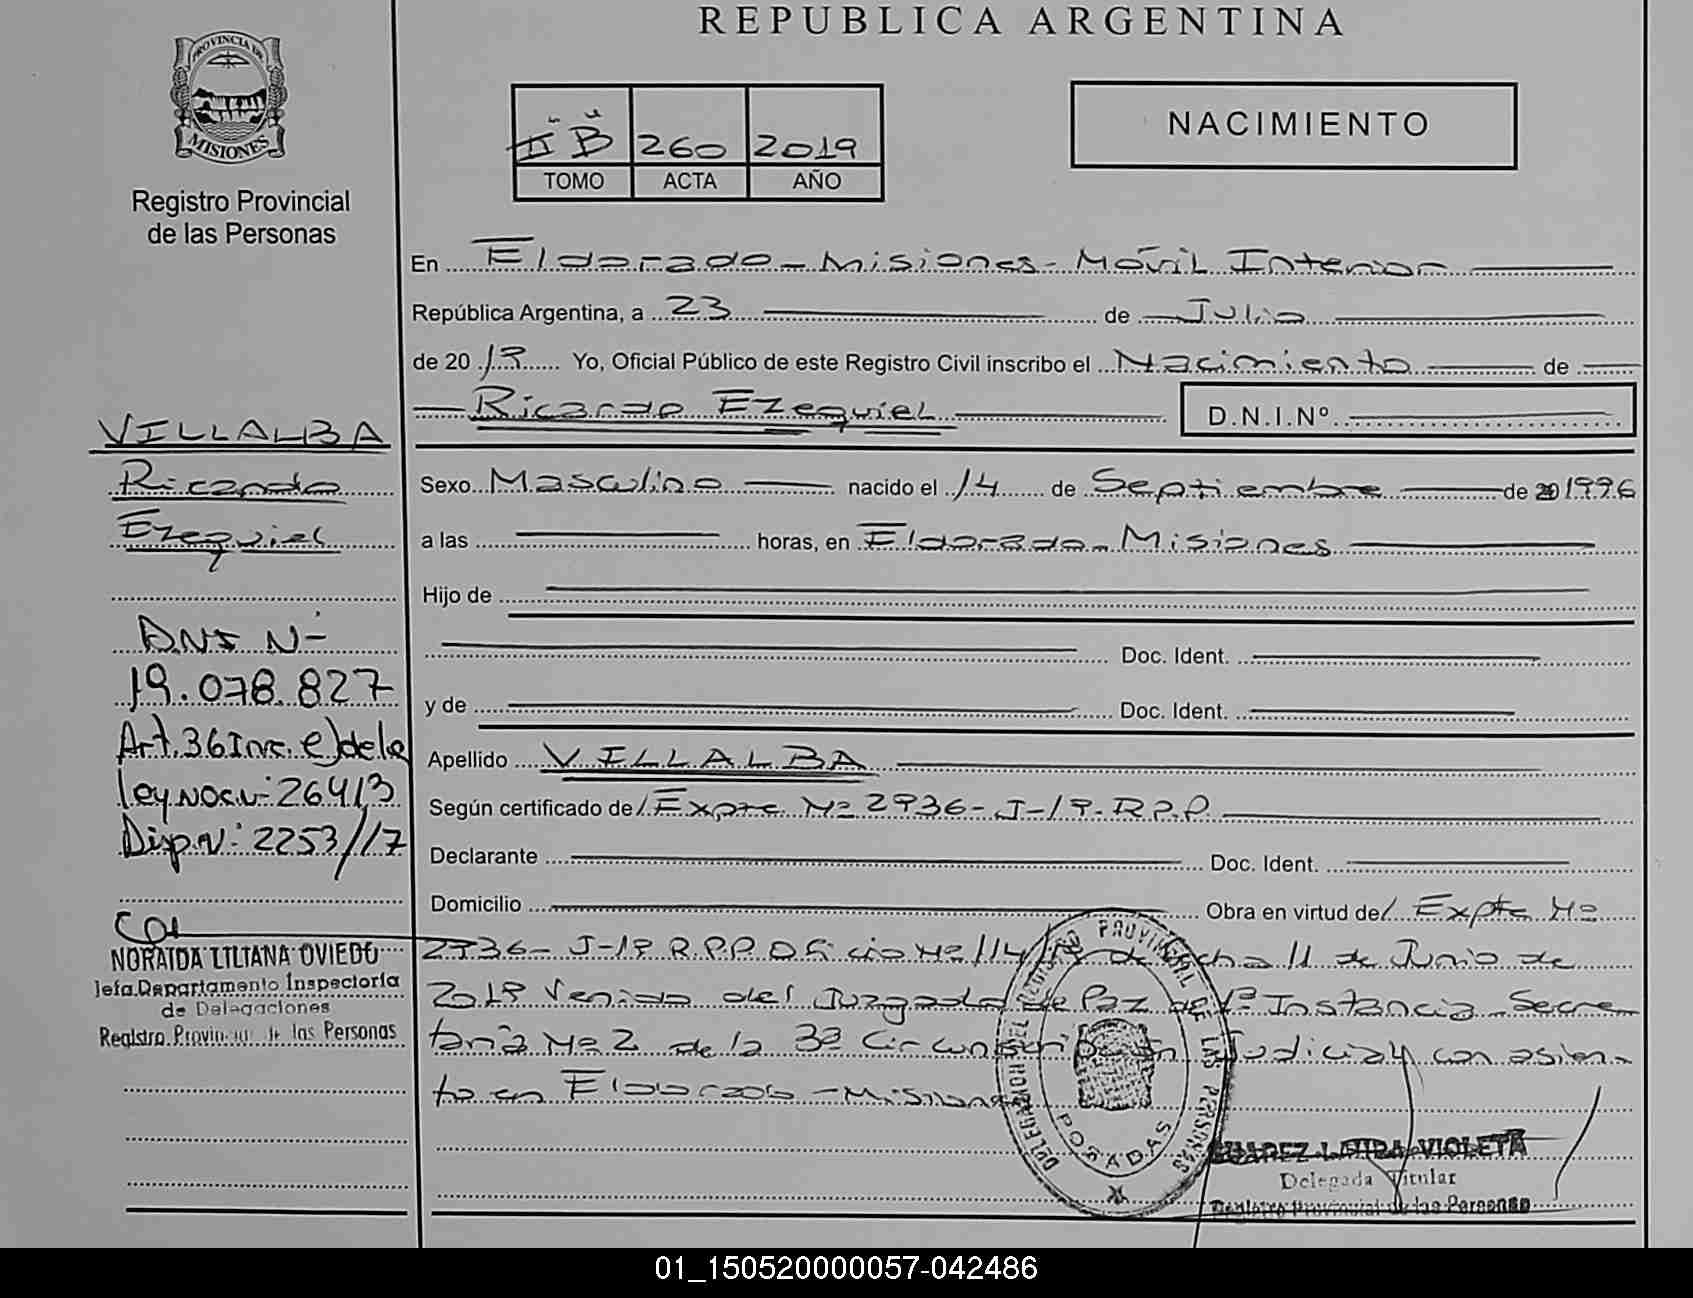 REPUBLICA ARGENTINA
PROVINCIA DE
MISIONES
Registro Provincial
de las Personas
"II" "B" 260 2019
TOMO ACTA AÑO
NACIMIENTO
En Eldorado - Misiones - Móvil Interior
República Argentina, a 23 de Julio
de 20 19 Yo, Oficial Público de este Registro Civil inscribo el Nacimiento de
Ricardo Ezequiel
D.N.I.Nº
VILLALBA
Ricardo
Ezequiel
DNI N-
19.078.827
Art. 36 Inc. e) de la
ley Noc. N- 26413
Disp. N- 2253//17
NORAIDA LILIANA OVIEDO
Jefa Departamento Inspectoria
de Delegaciones
Registro Provincial de las Personas
Sexo Masculino nacido el 14 de Septiembre de 1996
a las horas, en Eldorado - Misiones
Hijo de
Doc. Ident.
y de Doc. Ident.
Apellido VILLALBA
Según certificado de/ Expte Nº 2936-J-19-R.P.P.
Declarante Doc. Ident.
Domicilio Obra en virtud de/ Expte Nº
2936-J-19 R.P.P. Oficio Nº 114/19 de fecha 11 de Junio de
2019 Venido del Juzgado de Paz de 1ª Instancia Secre
taria Nº 2 de la 3ª Circunscripción Judicial con asien
to en Eldorado - Misiones
DELEGACION DEL REGISTRO PROVINCIAL DE LAS PERSONAS
POSADAS
SUAREZ LAURA VIOLETA
Delegada Titular
Registro Provincial de las Personas
01_150520000057-042486